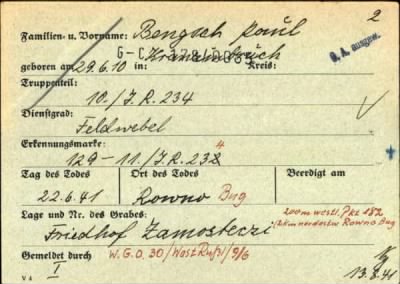 2
Familien- u. Vorname: Bengsch Paul
G.A. ausgew.
geboren am 29.6.10 in: Kreis:
Truppenteil:
10./J.R. 234
Dienstgrad:
Feldwebel
Erkennungsmarke:
129 - 11./J.R. 238
4
Tag des Todes Ort des Todes Beerdigt am
22.6.41 Rowno Bug
Lage und Nr. des Grabes: 200m westl. Pkt 182
Friedhof Zamosteczi (2km nordostw. Rowno Bug
Gemeldet durch W.G.O. 30/West Rußl/9/6
I
13.8.41
V 4